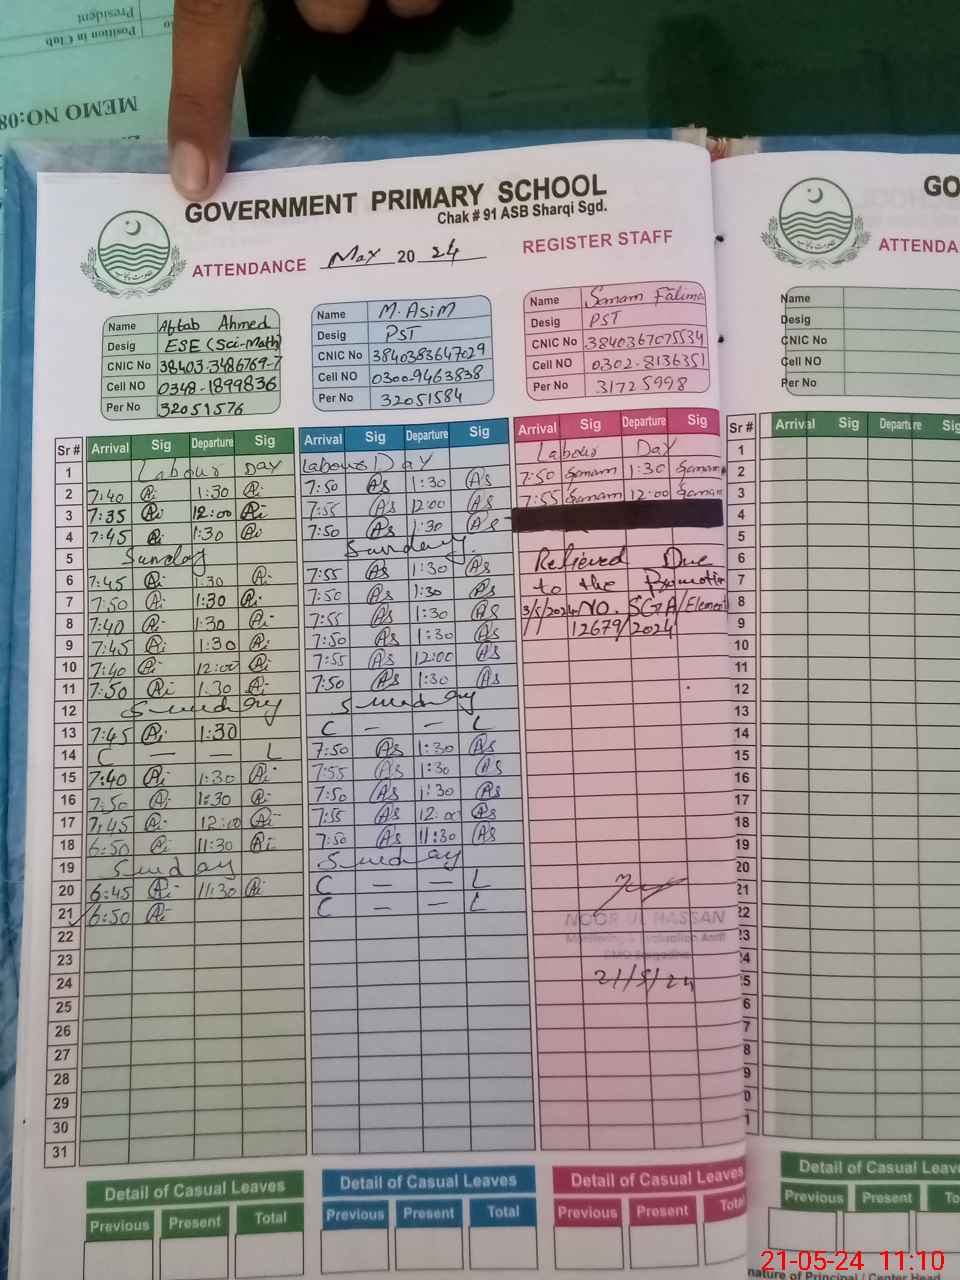 Position in Club
President
MEMO NO:08
GOVERNMENT PRIMARY SCHOOL
Chak # 91 ASB Sharqi Sgd.
ATTENDANCE May 2024 REGISTER STAFF
Name Aftab Ahmed
Desig ESE (Sci-Math)
CNIC No 38403-3486769-7
Cell NO 0348-1899836
Per No 32051576
Name M. Asim
Desig PST
CNIC No 3840383647029
Cell NO 0300-9463838
Per No 32051584
Name Samam Fatima
Desig PST
CNIC No 3840367075534
Cell NO 0302-8136351
Per No 31725998
Sr # Arrival Sig Departure Sig Arrival Sig Departure Sig Arrival Sig Departure Sig
1 Labour Day Labour Day Labour Day
2 7:40 1:30 7:50 As 1:30 As 7:50 Samam 1:30 Samam
3 7:35 12:00 7:55 As 12:00 As 7:55 Samam 12:00 Samam
4 7:45 1:30 7:50 As 1:30 As
5 Sunday Sunday
6 7:45 1:30 7:55 As 1:30 As Relieved Due
7 7:50 1:30 7:50 As 1:30 As to the Promotin
8 7:40 1:30 7:55 As 1:30 As 3/5/2024 NO. SGA/Element
9 7:45 1:30 7:50 As 1:30 As 12679/2024
10 7:40 12:00 7:55 As 12:00 As
11 7:50 1:30 7:50 As 1:30 As
12 Sunday Sunday
13 7:45 1:30 C — — L
14 C — — L 7:50 As 1:30 As
15 7:40 1:30 7:55 As 1:30 As
16 7:50 1:30 7:50 As 1:30 As
17 7:45 12:00 7:55 As 12:00 As
18 6:50 11:30 7:50 As 11:30 As
19 Sunday Sunday
20 6:45 11:30 C — — L
21 6:50 C — — L
NOOR UL HASSAN
Monitoring & Evaluation Asstt
21/5/24
22
23
24
25
26
27
28
29
30
31
Detail of Casual Leaves
Previous Present Total
Detail of Casual Leaves
Previous Present Total
Detail of Casual Leaves
Previous Present Total
GO
ATTENDA
Name
Desig
CNIC No
Cell NO
Per No
Sr # Arrival Sig Departure Sig
1
2
3
4
5
6
7
8
9
10
11
12
13
14
15
16
17
18
19
20
21
22
23
24
5
6
7
8
9
0
1
Detail of Casual Leave
Previous Present To
nature of Principal / Center Head
21-05-24 11:10